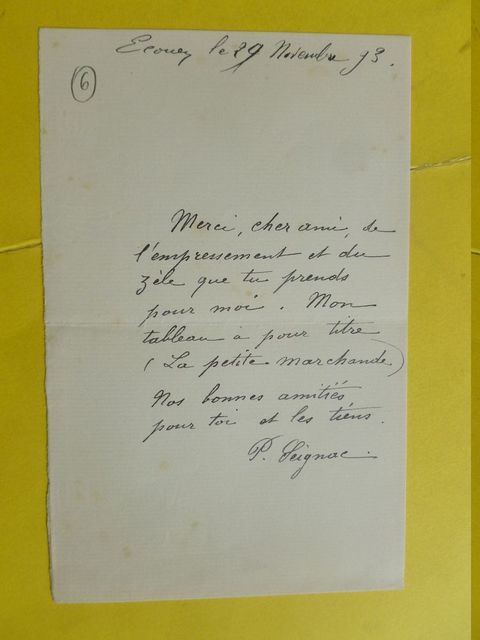 Ecouen le 29 Novembre 93.
6
Merci, cher ami, de
l'empressement et du
zèle que tu prends
pour moi. Mon
tableau a pour titre
(La petite marchande)
Nos bonnes amitiés
pour toi et les tiens.
P. Seignac.